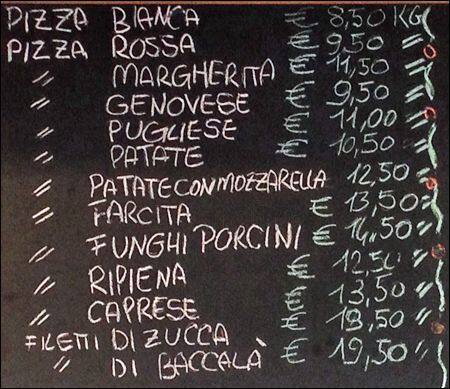 PIZZA BIANCA € 8,50 KG
PIZZA ROSSA € 9,50 "
" MARGHERITA € 11,50 "
" GENOVESE € 9,50 "
" PUGLIESE € 11,00 "
" PATATE € 10,50 "
" PATATE CON MOZZARELLA 12,50 "
" FARCITA € 13,50 "
" FUNGHI PORCINI € 14,50 "
" RIPIENA € 12,50 "
" CAPRESE € 13,50 "
FILETTI DI ZUCCA € 18,50 "
" DI BACCALÀ € 19,50 "